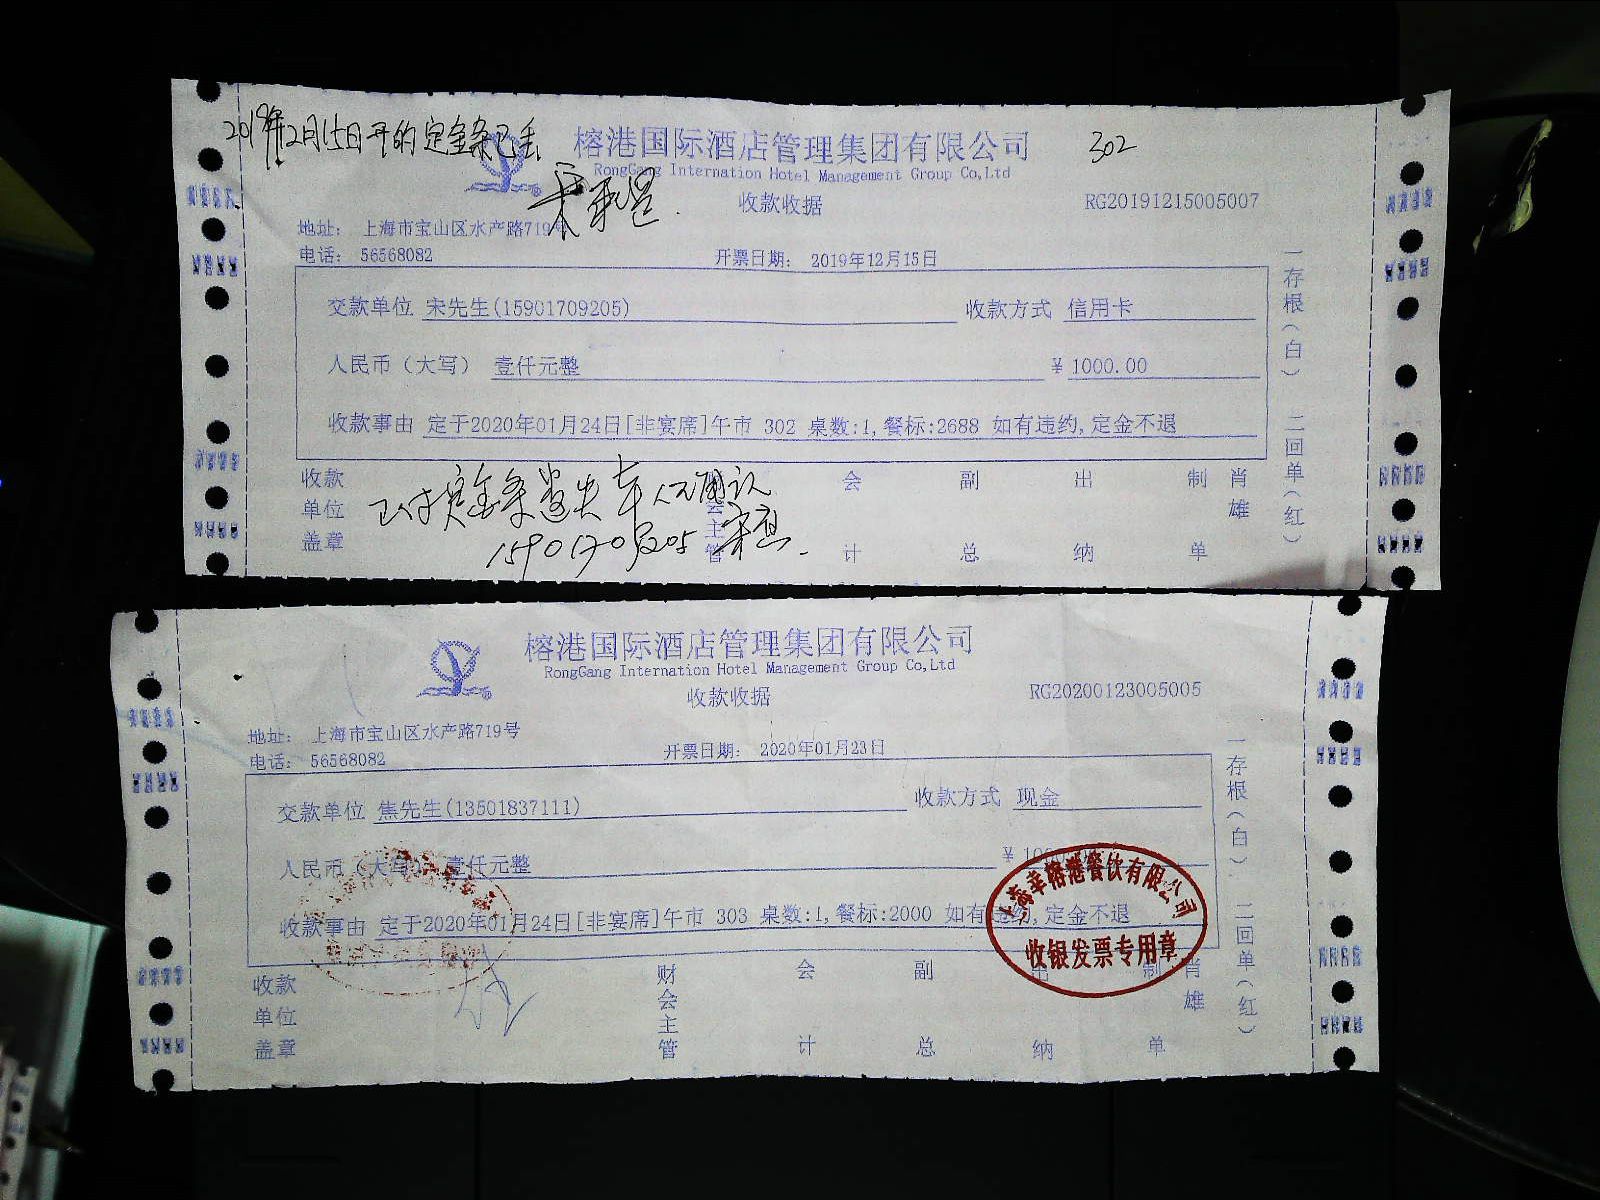 2019年12月15日开的定金条已丢
榕港国际酒店管理集团有限公司
302
RongGang Internation Hotel Management Group Co,Ltd
收款收据
RG20191215005007
地址: 上海市宝山区水产路719号
电话: 56568082
开票日期: 2019年12月15日
交款单位 宋先生(15901709205)
收款方式 信用卡
人民币（大写） 壹仟元整
¥ 1000.00
收款事由 定于2020年01月24日[非宴席]午市 302 桌数:1,餐标:2688 如有违约,定金不退
一存根(白) 二回单(红)
收款单位盖章
会计
副总
出纳
制单
肖雄
已付定金条遗失本人确认
15901709205
榕港国际酒店管理集团有限公司
RongGang Internation Hotel Management Group Co,Ltd
收款收据
RG20200123005005
地址: 上海市宝山区水产路719号
电话: 56568082
开票日期: 2020年01月23日
交款单位 焦先生(13501837111)
收款方式 现金
人民币（大写） 壹仟元整
收款事由 定于2020年01月24日[非宴席]午市 303 桌数:1,餐标:2000 如有违约,定金不退
一存根(白) 二回单(红)
收银发票专用章
收款单位盖章
财会主管
会计
副总
出纳
制单
肖雄